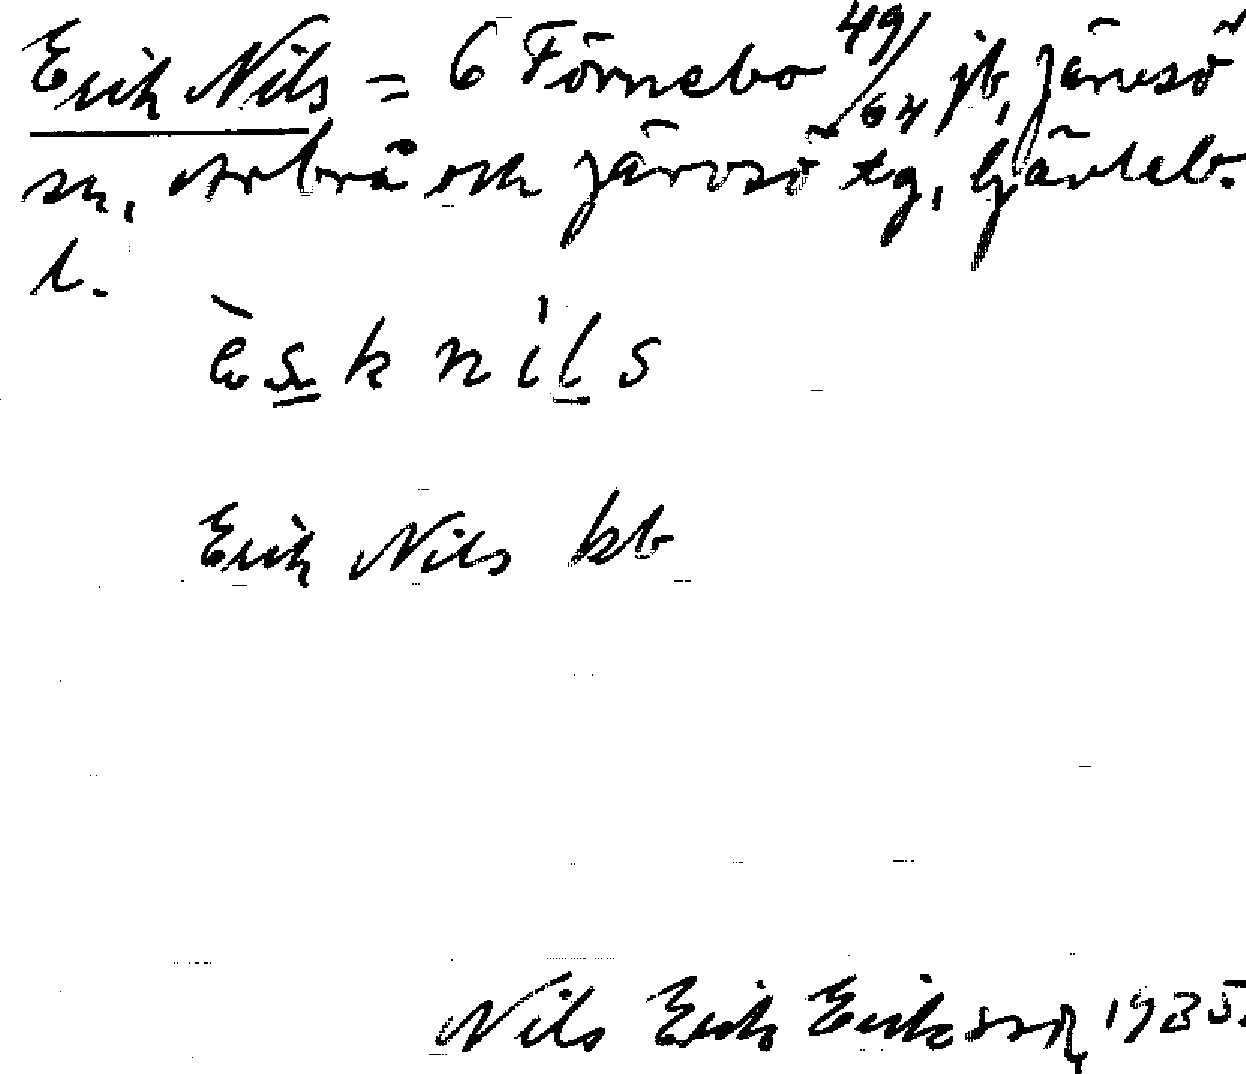 Erik Nils = 6 Förnebo 49/64 jb, Järvsö
sn, Arbrå och Järvsö tg, Gävleb.
l.
èsk níls
Erik Nils kb
Nils Erik Eriksson, 1935.